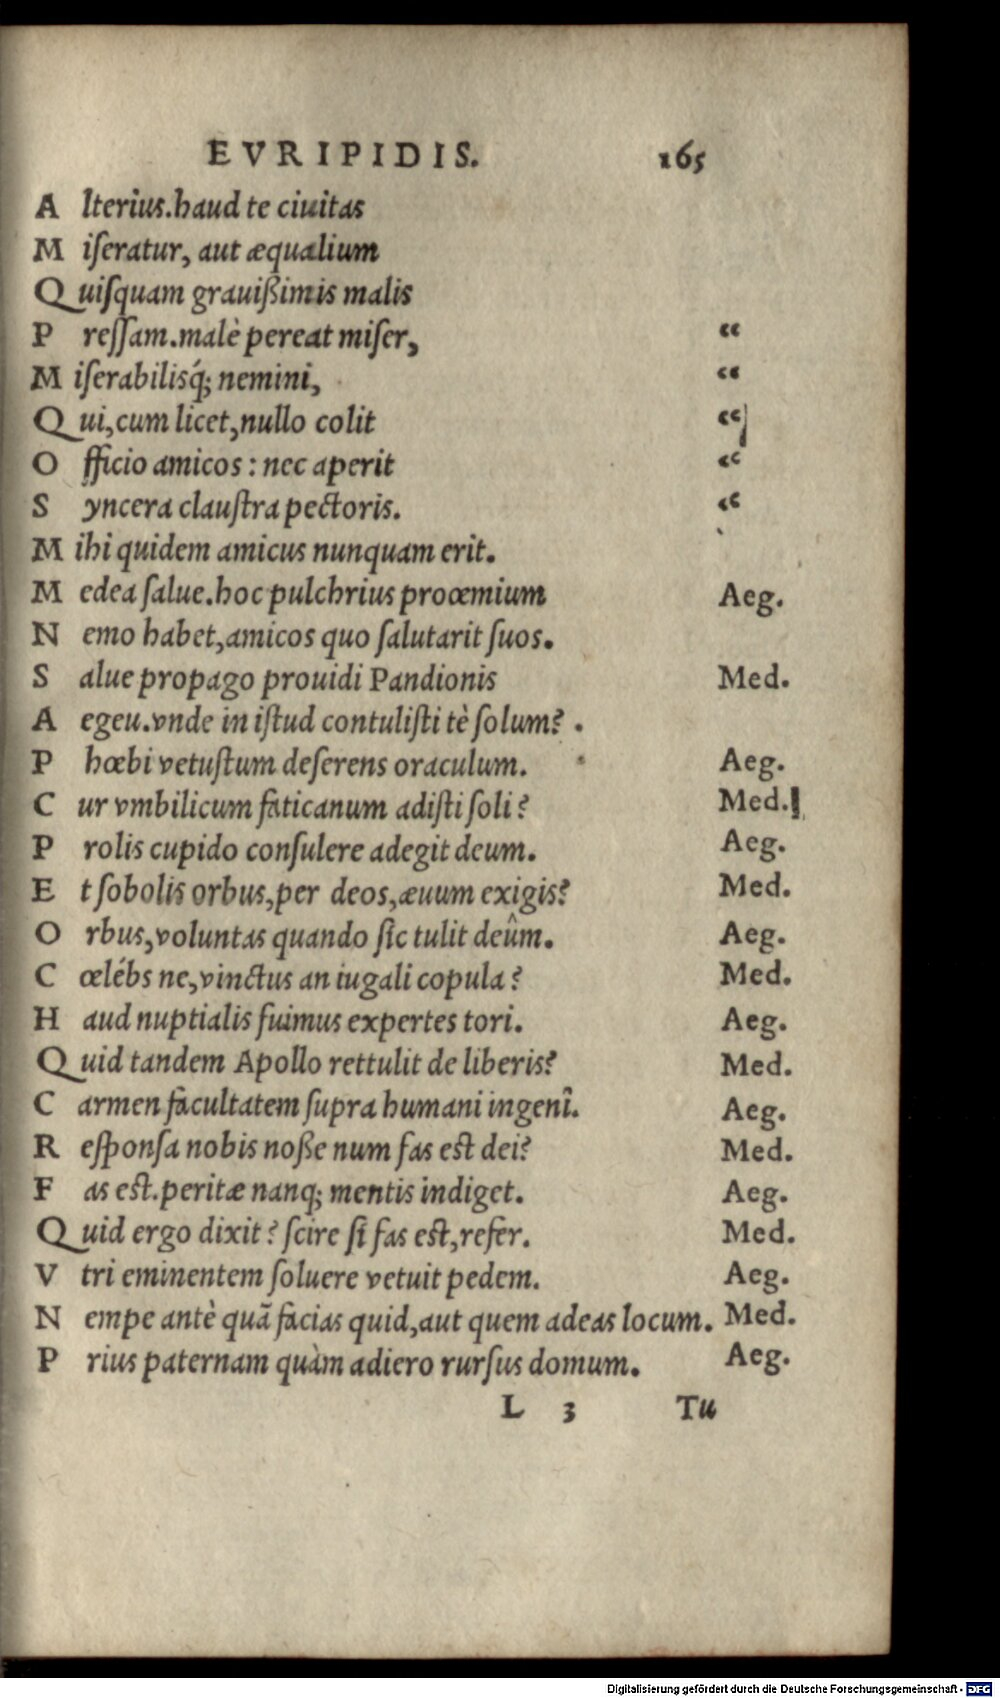 EVRIPIDIS. 165
Alterius.haud te ciuitas
Miseratur, aut æqualium
Quisquam grauißimis malis
Pressam.malè pereat miser, “
Miserabilisq́; nemini, “
Qui,cum licet,nullo colit “
Officio amicos: nec aperit “
Syncera claustra pectoris. “
Mihi quidem amicus nunquam erit.
Medea salue.hoc pulchrius proœmium Aeg.
Nemo habet,amicos quo salutarit suos.
Salue propago prouidi Pandionis Med.
Aegeu.vnde in istud contulisti tè solum?
Phœbi vetustum deserens oraculum. Aeg.
Cur vmbilicum faticanum adisti soli? Med.
Prolis cupido consulere adegit deum. Aeg.
Et sobolis orbus,per deos,æuum exigis? Med.
Orbus,voluntas quando sic tulit deûm. Aeg.
Cœlébs ne,vinctus an iugali copula? Med.
Haud nuptialis fuimus expertes tori. Aeg.
Quid tandem Apollo rettulit de liberis? Med.
Carmen facultatem supra humani ingenî. Aeg.
Responsa nobis noße num fas est dei? Med.
Fas est.peritæ nanq; mentis indiget. Aeg.
Quid ergo dixit? scire si fas est,refer. Med.
Vtri eminentem soluere vetuit pedem. Aeg.
Nempe antè quã facias quid,aut quem adeas locum. Med.
Prius paternam quàm adiero rursus domum. Aeg.
L 3 Tu
Digitalisierung gefördert durch die Deutsche Forschungsgemeinschaft - DFG